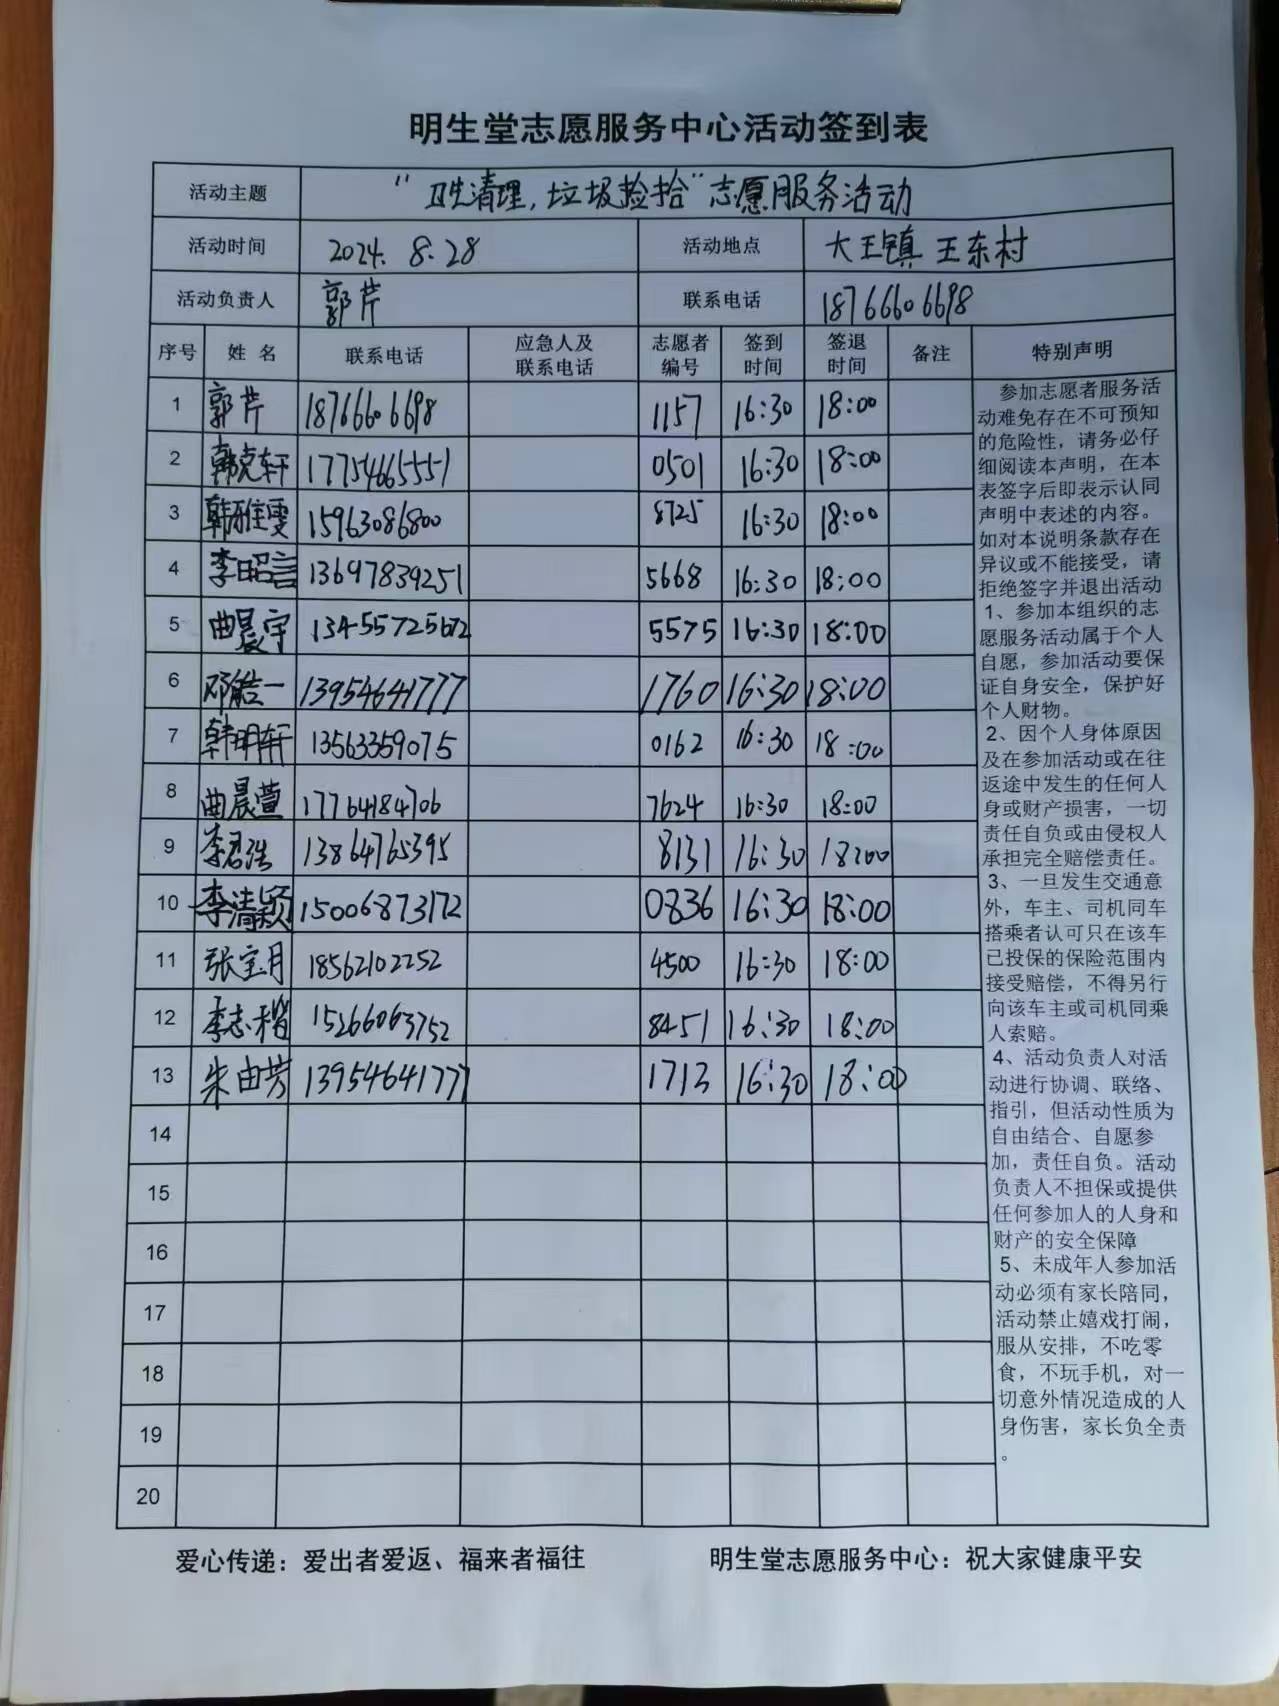 明生堂志愿服务中心活动签到表
活动主题 “卫生清理,垃圾捡拾”志愿服务活动
活动时间 2024.8.28 活动地点 大王镇 王东村
活动负责人 郭芹 联系电话 18766606698
序号 姓名 联系电话 应急人及联系电话 志愿者编号 签到时间 签退时间 备注 特别声明
1 郭芹 18766606698 1157 16:30 18:00
2 韩克轩 17754665551 0501 16:30 18:00
3 韩雅雯 15963086800 8725 16:30 18:00
4 李昭言 13697839251 5668 16:30 18:00
5 曲晨宇 13455725672 5575 16:30 18:00
6 邓皓一 13954641777 1760 16:30 18:00
7 韩明轩 13563359075 0162 16:30 18:00
8 曲晨萱 17764184706 7624 16:30 18:00
9 李君浩 13864765395 8131 16:30 18:00
10 李清颖 15006873172 0836 16:30 18:00
11 张宝月 18562102252 4500 16:30 18:00
12 李志楷 15266063752 8451 16:30 18:00
13 朱由芳 13954641777 1713 16:30 18:00
14
15
16
17
18
19
20
参加志愿者服务活
动难免存在不可预知
的危险性，请务必仔
细阅读本声明，在本
表签字后即表示认同
声明中表述的内容。
如对本说明条款存在
异议或不能接受，请
拒绝签字并退出活动
1、参加本组织的志
愿服务活动属于个人
自愿，参加活动要保
证自身安全，保护好
个人财物。
2、因个人身体原因
及在参加活动或在往
返途中发生的任何人
身或财产损害，一切
责任自负或由侵权人
承担完全赔偿责任。
3、一旦发生交通意
外，车主、司机同车
搭乘者认可只在该车
已投保的保险范围内
接受赔偿，不得另行
向该车主或司机同乘
人索赔。
4、活动负责人对活
动进行协调、联络、
指引，但活动性质为
自由结合、自愿参
加，责任自负。活动
负责人不担保或提供
任何参加人的人身和
财产的安全保障
5、未成年人参加活
动必须有家长陪同，
活动禁止嬉戏打闹，
服从安排，不吃零
食，不玩手机，对一
切意外情况造成的人
身伤害，家长负全责
。
爱心传递：爱出者爱返、福来者福往 明生堂志愿服务中心：祝大家健康平安